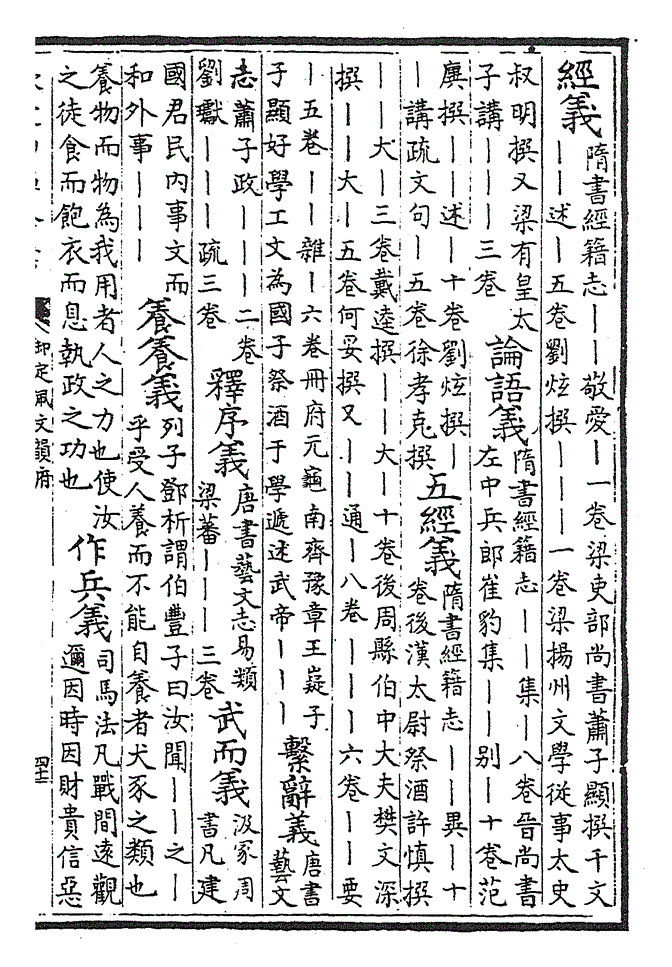 經義
隋書經籍志｜｜敬愛｜一卷梁吏部尚書蕭子顯撰千文
｜｜述｜五卷劉炫撰｜｜｜一卷梁揚州文學從事太史
叔明撰又梁有皇太
子講｜｜｜三卷
論語義
隋書經籍志｜｜集｜八卷晉尚書
左中兵郎崔豹集｜｜别｜十卷范
廙撰｜｜述｜十卷劉炫撰｜
｜講疏文句｜五卷徐孝克撰
五經義
隋書經籍志｜｜異｜十
卷後漢太尉祭酒許慎撰
｜｜大｜三卷戴逵撰｜｜大｜十卷後周縣伯中大夫樊文深
撰｜｜大｜五卷何妥撰又｜｜通｜八卷｜｜｜六卷｜｜要
｜五卷｜｜雜｜六卷冊府元龜南齊豫章王嶷子
子顯好學工文為國子祭酒于學遞述武帝｜｜｜
繫辭義
唐書
藝文
志蕭子政｜｜｜二卷
劉瓛｜｜｜｜疏三卷
釋序義
唐書藝文志易類
梁蕃｜｜｜三卷
武而義
汲冢周
書凡建
國君民内事文而
和外事｜｜｜
養養義
列子鄧析謂伯豐子曰汝聞｜｜之｜
乎受人養而不能自養者犬豕之類也
養物而物為我用者人之力也使汝
之徒食而飽衣而息執政之功也
作兵義
司馬法凡戰間遠觀
邇因時因財貴信惡
御定佩文韻府